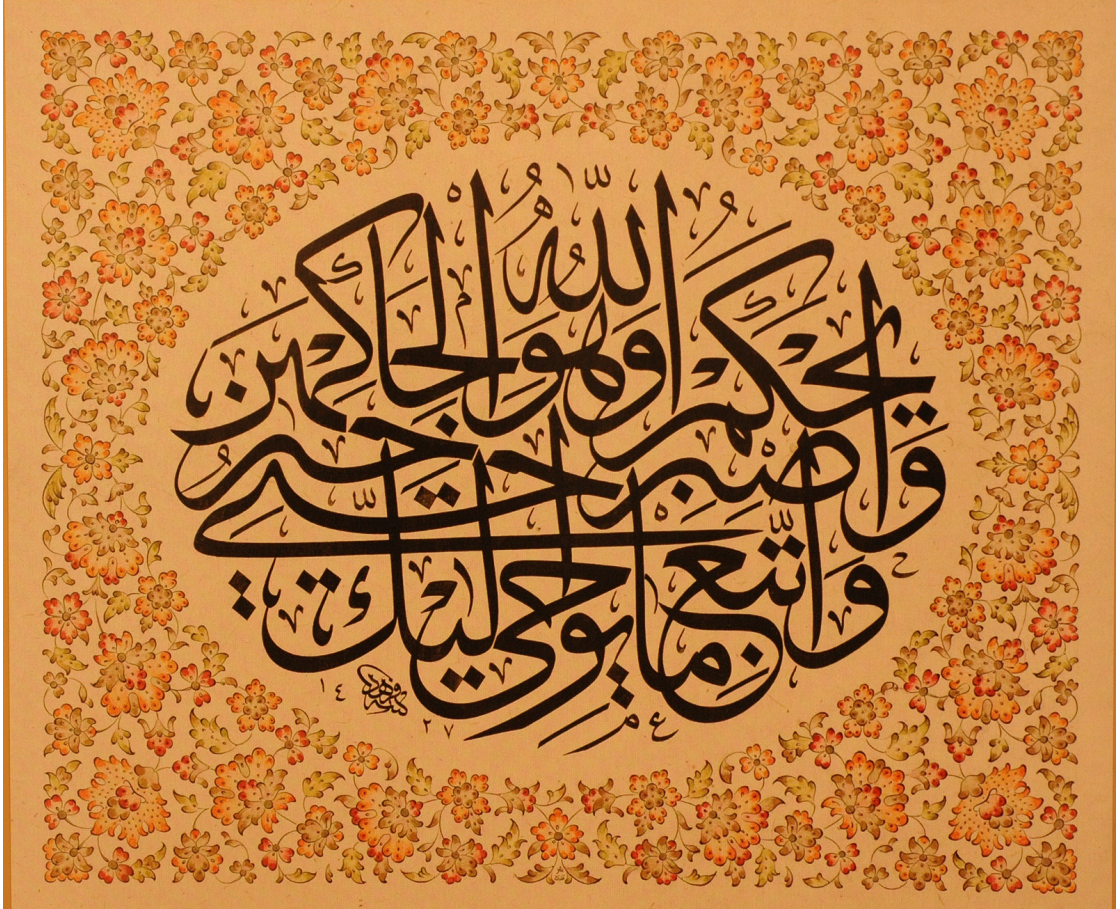 وَاتَّبِعْ مَا يُوحَى إِلَيْكَ
وَاصْبِرْ حَتَّى
يَحْكُمَ اللَّهُ وَهُوَ خَيْرُ الْحَاكِمِينَ
١٤٢٧